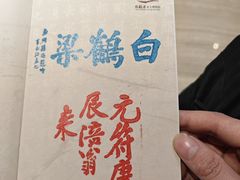 白鶴梁
元符庚
辰涪翁
来